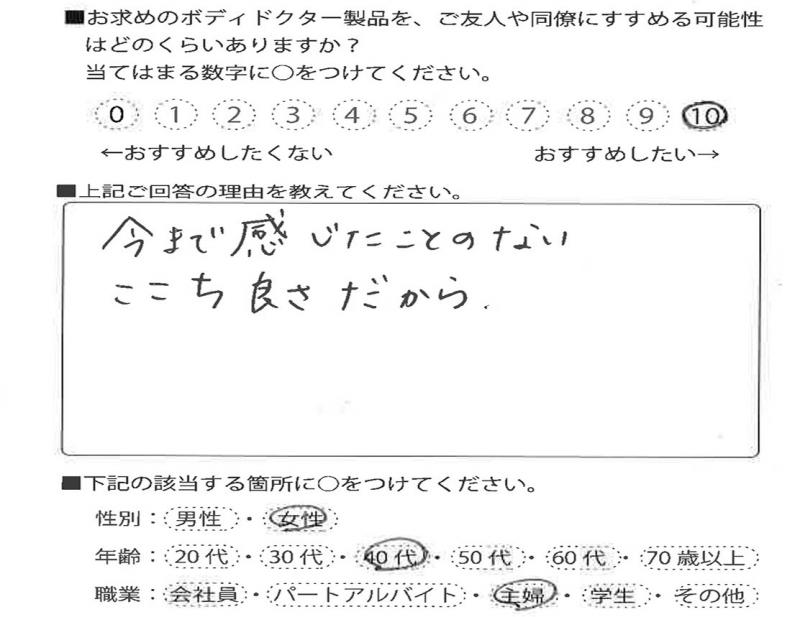 ■お求めのボディドクター製品を、ご友人や同僚にすすめる可能性
はどのくらいありますか？
当てはまる数字に○をつけてください。
0 1 2 3 4 5 6 7 8 9 10
←おすすめしたくない おすすめしたい→
■上記ご回答の理由を教えてください。
今まで感じたことのない
ここち良さだから.
■下記の該当する箇所に○をつけてください。
性別：男性・女性
年齢：20代・30代・40代・50代・60代・70歳以上
職業：会社員・パートアルバイト・主婦・学生・その他